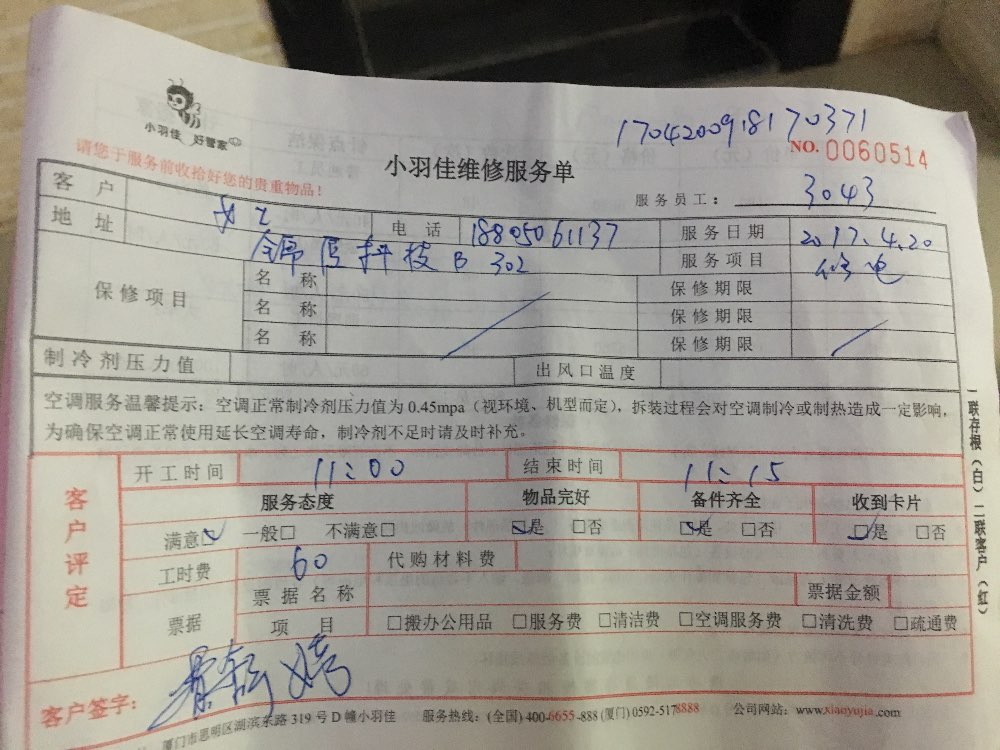 小羽佳 好管家
1704200918170371
NO. 0060514
请您于服务前收拾好您的贵重物品！
小羽佳维修服务单
服务员工： 3043
客户 女士 电话 18805061137 服务日期 2017.4.20
地址 科技B 302 服务项目 修电
保修项目 名称 保修期限
名称 保修期限
名称 保修期限
制冷剂压力值 出风口温度
空调服务温馨提示：空调正常制冷剂压力值为0.45mpa（视环境、机型而定），拆装过程会对空调制冷或制热造成一定影响，
为确保空调正常使用延长空调寿命，制冷剂不足时请及时补充。
客户评定
开工时间 11:00 结束时间 11:15
服务态度 物品完好 备件齐全 收到卡片
满意☑ 一般□ 不满意□ ☑是 □否 ☑是 □否 ☑是 □否
工时费 60 代购材料费
票据 票据名称 票据金额
项目 □搬办公用品 □服务费 □清洁费 □空调服务费 □清洗费 □疏通费
客户签字：
厦门市思明区湖滨东路319号D幢小羽佳 服务热线：(全国) 400-6655-888 (厦门) 0592-5178888 公司网站：www.xiaoyujia.com
一联存根（白）二联客户（红）